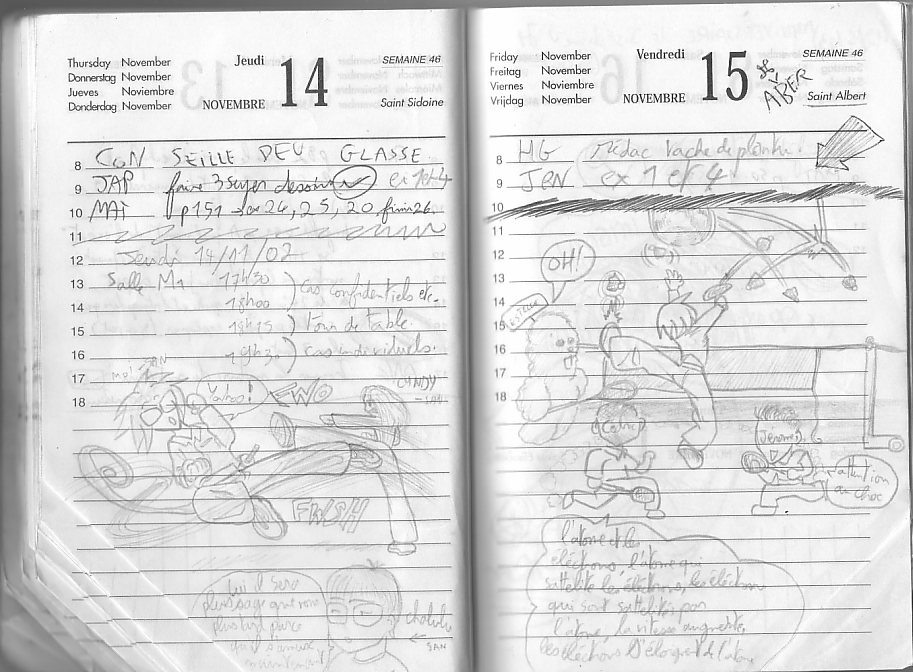 Thursday November
Donnerstag November
Jueves Noviembre
Donderdag November
Jeudi
NOVEMBRE
14
SEMAINE 46
Saint Sidoine
8 CON SEILLE DEU GLASSE
9 JAP faire 3 super dessins
10 MAT p151 → ex 24, 25, 20, finir 26.
11
12 Jeudi 14/11/02
13 Salle M1 17h30
cas confidentiels etc.
14 18h00
15 19h15 tour de table.
16 19h30 cas individuels.
17 moi
18
CANDY
Yahoo!
FWO
FWSH
lui il sera
plus sage que moi
plus tard parce
qu'il s'amuse
maintenant
SAN
Friday November
Freitag November
Viernes Noviembre
Vrijdag November
Vendredi
NOVEMBRE
15
SEMAINE 46
Saint Albert
ABER
8 HG Médoc Vache de plantu.
9 JEN ex 1 et 4
10
11
12
OH!
13
14
15
16
17
18
Cédric
Jérome
attention
au choc
l'atome et les
éléctrons, l'atome qui
sattelite les éléctrons, les éléctrons
qui sont sattelités par
l'atome, la vitesse augmente,
les éléctrons s'éloignent de l'atome